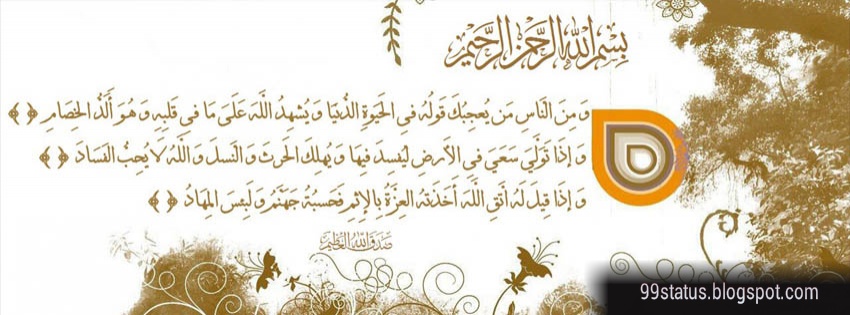 بِسْمِ اللهِ الرَّحْمٰنِ الرَّحِيْمِ
وَ مِنَ النَّاسِ مَن يُعجِبُكَ قَولُهُ فِي الحَيوةِ الدُّنيَا وَ يُشهِدُ اللَّهَ عَلَىٰ مَا فِي قَلبِهِ وَ هُوَ أَلَدُّ الخِصَامِ ﴿ ﴾
وَ إِذَا تَوَلَّىٰ سَعَىٰ فِي الأَرضِ لِيُفسِدَ فِيهَا وَ يُهلِكَ الحَرثَ وَ النَّسلَ وَ اللَّهُ لَا يُحِبُّ الفَسَادَ ﴿ ﴾
وَ إِذَا قِيلَ لَهُ اتَّقِ اللَّهَ أَخَذَتهُ العِزَّةُ بِالإِثمِ فَحَسبُهُ جَهَنَّمُ وَ لَبِئسَ المِهَادُ ﴿ ﴾
صَدَقَ اللهُ العَظِيم
99status.blogspot.com